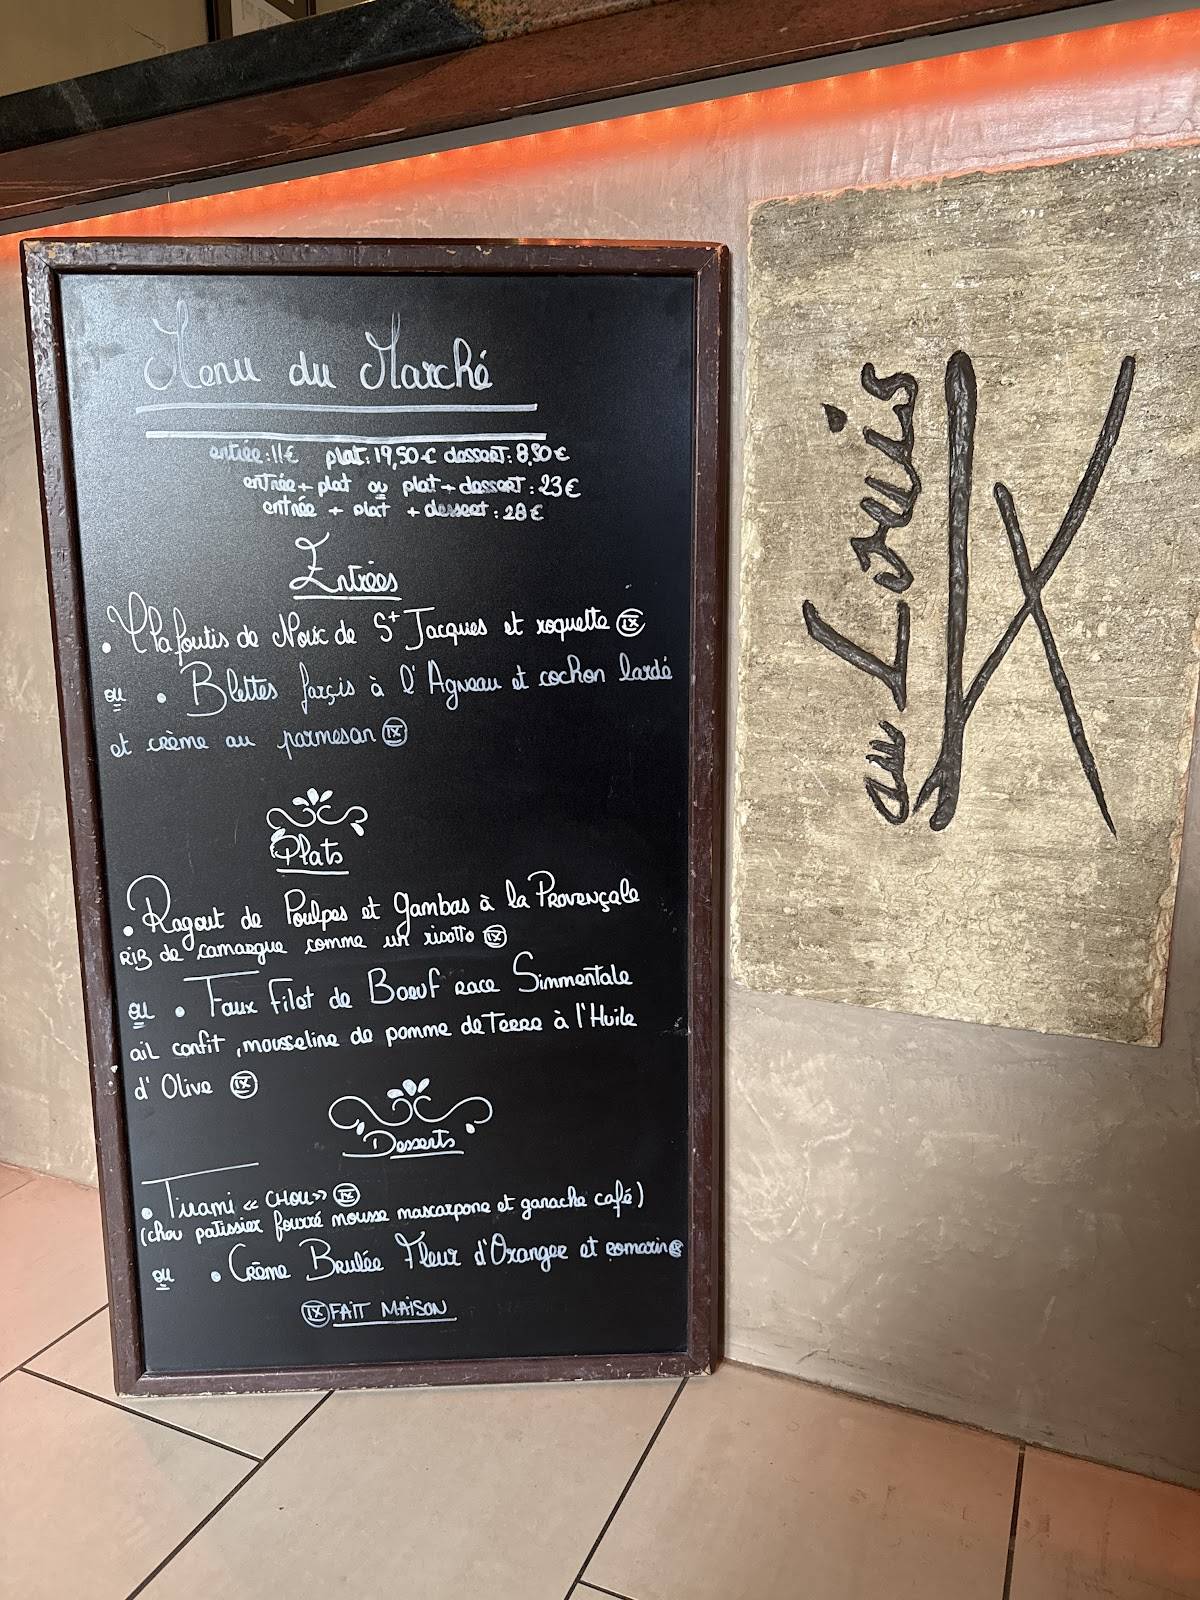 Menu du Marché
entrée : 11€ plat : 19,50€ dessert : 8,50€
entrée + plat ou plat + dessert : 23€
entrée + plat + dessert : 28€
Entrées
• Clafoutis de Noix de St Jacques et roquette IX
ou • Blettes farçis à l'Agneau et cochon lardé
et crème au parmesan IX
Plats
• Ragout de Poulpes et gambas à la Provençale
RiZ de camargue comme un risotto IX
ou • Faux Filet de Boeuf race Simmentale
ail confit, mousseline de pomme de Terre à l'Huile
d'Olive IX
Desserts
• Tirami « CHOU » IX
(chou patissier fourré mousse mascarpone et ganache café)
ou • Crème Brulée Fleur d'Oranger et romarin IX
IX FAIT MAISON
au Louis IX